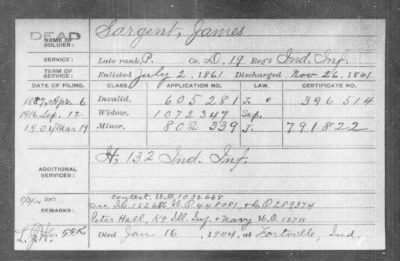 DEAD
NAME OF SOLDIER: Sargent, James
SERVICE: Late rank P. Co. D. 19 Reg't Ind. Inf.
TERM OF SERVICE: Enlisted July 2, 1861. Discharged Nov 26, 1861
DATE OF FILING. CLASS. APPLICATION NO. LAW. CERTIFICATE NO.
1887, Apr. 6 Invalid, 605281 396514
1916 Sep. 12 Widow, 1072347 Sep.
Mar 19 Minor, 802339 791822
ADDITIONAL SERVICES: H, 132 Ind. Inf.
REMARKS: contest. W.O. 1032668
Peter Hall, K9 Ill. Inf. & Navy W.O. 12711
Died Jan 16, 1904, at Fortville, Ind.